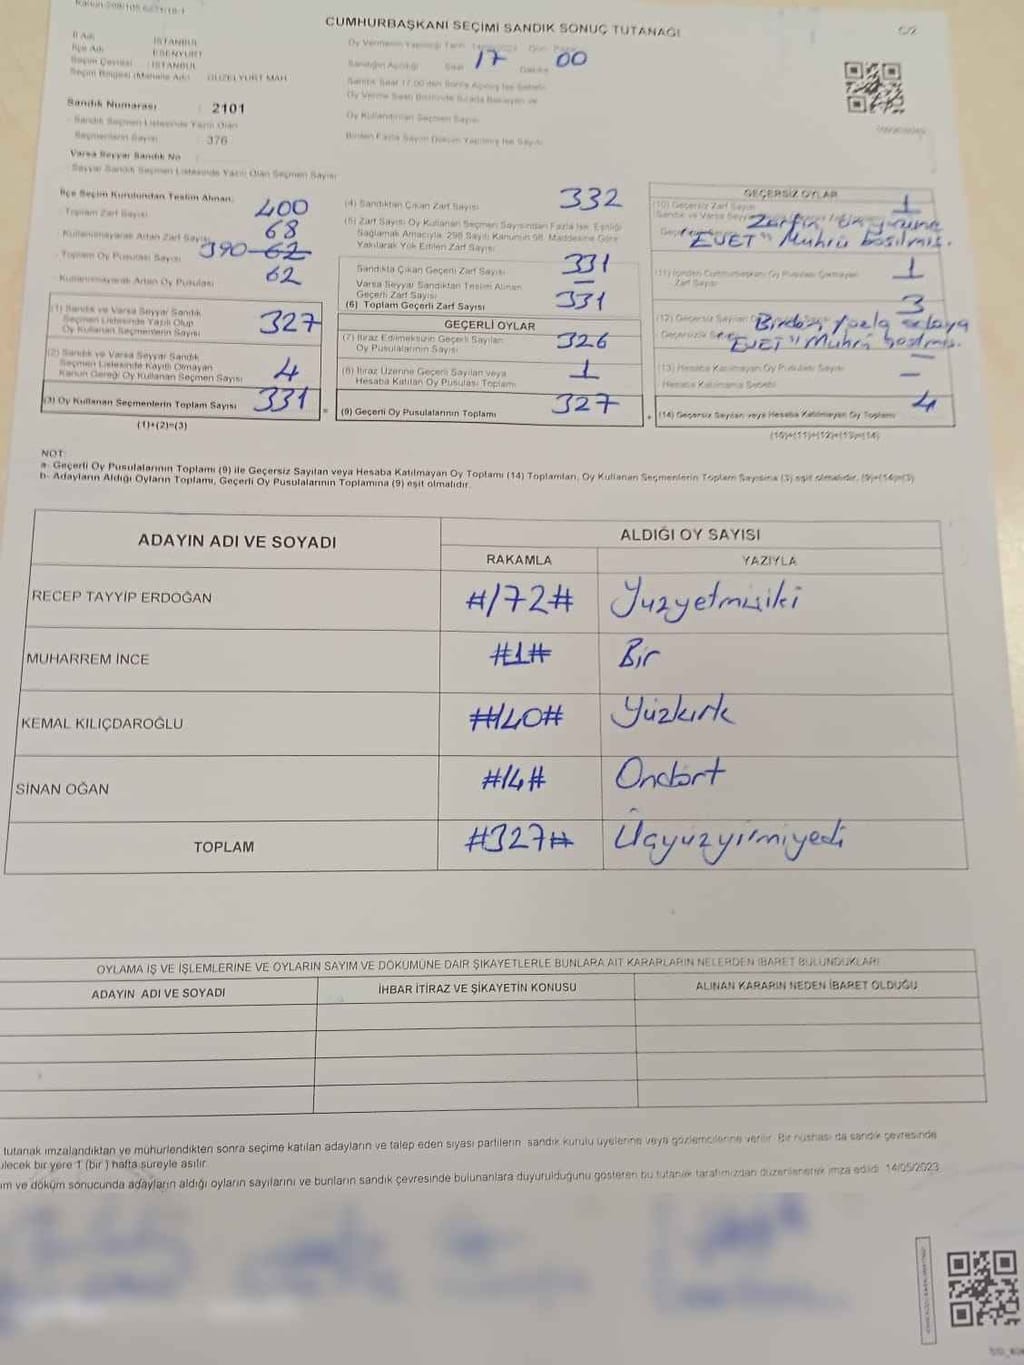 CUMHURBAŞKANI SEÇİMİ SANDIK SONUÇ TUTANAĞI
C/2
İl Adı : İSTANBUL
İlçe Adı : ESENYURT
Seçim Çevresi : İSTANBUL
Seçim Bölgesi (Mahalle Adı) : GÜZELYURT MAH
Sandık Numarası : 2101
Sandık Seçmen Listesinde Yazılı Olan
Seçmenlerin Sayısı : 376
Varsa Seyyar Sandık No
Seyyar Sandık Seçmen Listesinde Yazılı Olan Seçmen Sayısı
17 00
İlçe Seçim Kurulundan Teslim Alınan;
Toplam Zarf Sayısı 400
Kullanılmayarak Artan Zarf Sayısı 68
Toplam Oy Pusulası Sayısı 390 62
Kullanılmayarak Artan Oy Pusulası 62
(1) Sandık ve Varsa Seyyar Sandık
Seçmen Listesinde Yazılı Olup
Oy Kullanan Seçmenlerin Sayısı 327
(2) Sandık ve Varsa Seyyar Sandık
Seçmen Listesinde Kayıtlı Olmayan
Kanun Gereği Oy Kullanan Seçmen Sayısı 4
(3) Oy Kullanan Seçmenlerin Toplam Sayısı 331 =
(1)+(2)=(3)
(4) Sandıktan Çıkan Zarf Sayısı 332
(5) Zarf Sayısı Oy Kullanan Seçmen Sayısından Fazla İse, Eşitliği
Sağlamak Amacıyla, 298 Sayılı Kanunun 98. Maddesine Göre
Yakılarak Yok Edilen Zarf Sayısı
Sandıkta Çıkan Geçerli Zarf Sayısı 331
Varsa Seyyar Sandıktan Teslim Alınan
Geçerli Zarf Sayısı —
(6) Toplam Geçerli Zarf Sayısı 331
GEÇERLİ OYLAR
(7) İtiraz Edilmeksizin Geçerli Sayılan
Oy Pusulalarının Sayısı 326
(8) İtiraz Üzerine Geçerli Sayılan veya
Hesaba Katılan Oy Pusulası Toplamı 1
(9) Geçerli Oy Pusulalarının Toplamı 327 +
GEÇERSİZ OYLAR
(10) Geçersiz Zarf Sayısı 1
Zarfın, ön yüzüne
"EVET" Mührü basılmış.
1
3
Birden fazla adaya
"EVET" Mührü basılmış.
—
(13) Hesaba Katılmayan Oy Pusulası Sayısı —
Hesaba Katılmama Sebebi
(14) Geçersiz Sayılan veya Hesaba Katılmayan Oy Toplamı 4
(10)+(11)+(12)+(13)=(14)
NOT:
a- Geçerli Oy Pusulalarının Toplamı (9) ile Geçersiz Sayılan veya Hesaba Katılmayan Oy Toplamı (14) Toplamları, Oy Kullanan Seçmenlerin Toplam Sayısına (3) eşit olmalıdır. (9)+(14)=(3)
b- Adayların Aldığı Oyların Toplamı, Geçerli Oy Pusulalarının Toplamına (9) eşit olmalıdır.
ADAYIN ADI VE SOYADI
ALDIĞI OY SAYISI
RAKAMLA YAZIYLA
RECEP TAYYİP ERDOĞAN #172# Yüzyetmişiki
MUHARREM İNCE #1# Bir
KEMAL KILIÇDAROĞLU #140# Yüzkırk
SİNAN OĞAN #14# Ondört
TOPLAM #327# Üçyüzyirmiyedi
OYLAMA İŞ VE İŞLEMLERİNE VE OYLARIN SAYIM VE DÖKÜMÜNE DAİR ŞİKAYETLERLE BUNLARA AİT KARARLARIN NELERDEN İBARET BULUNDUKLARI
ADAYIN ADI VE SOYADI İHBAR İTİRAZ VE ŞİKAYETİN KONUSU ALINAN KARARIN NEDEN İBARET OLDUĞU
tutanak imzalandıktan ve mühürlendikten sonra seçime katılan adayların ve talep eden siyasi partilerin sandık kurulu üyelerine veya gözlemcilerine verilir. Bir nüshası da sandık çevresinde
ilecek bir yere 1 (bir) hafta süreyle asılır.
ım ve döküm sonucunda adayların aldığı oyların sayılarını ve bunların sandık çevresinde bulunanlara duyurulduğunu gösteren bu tutanak tarafımızdan düzenlenerek imza edildi. 14/05/2023